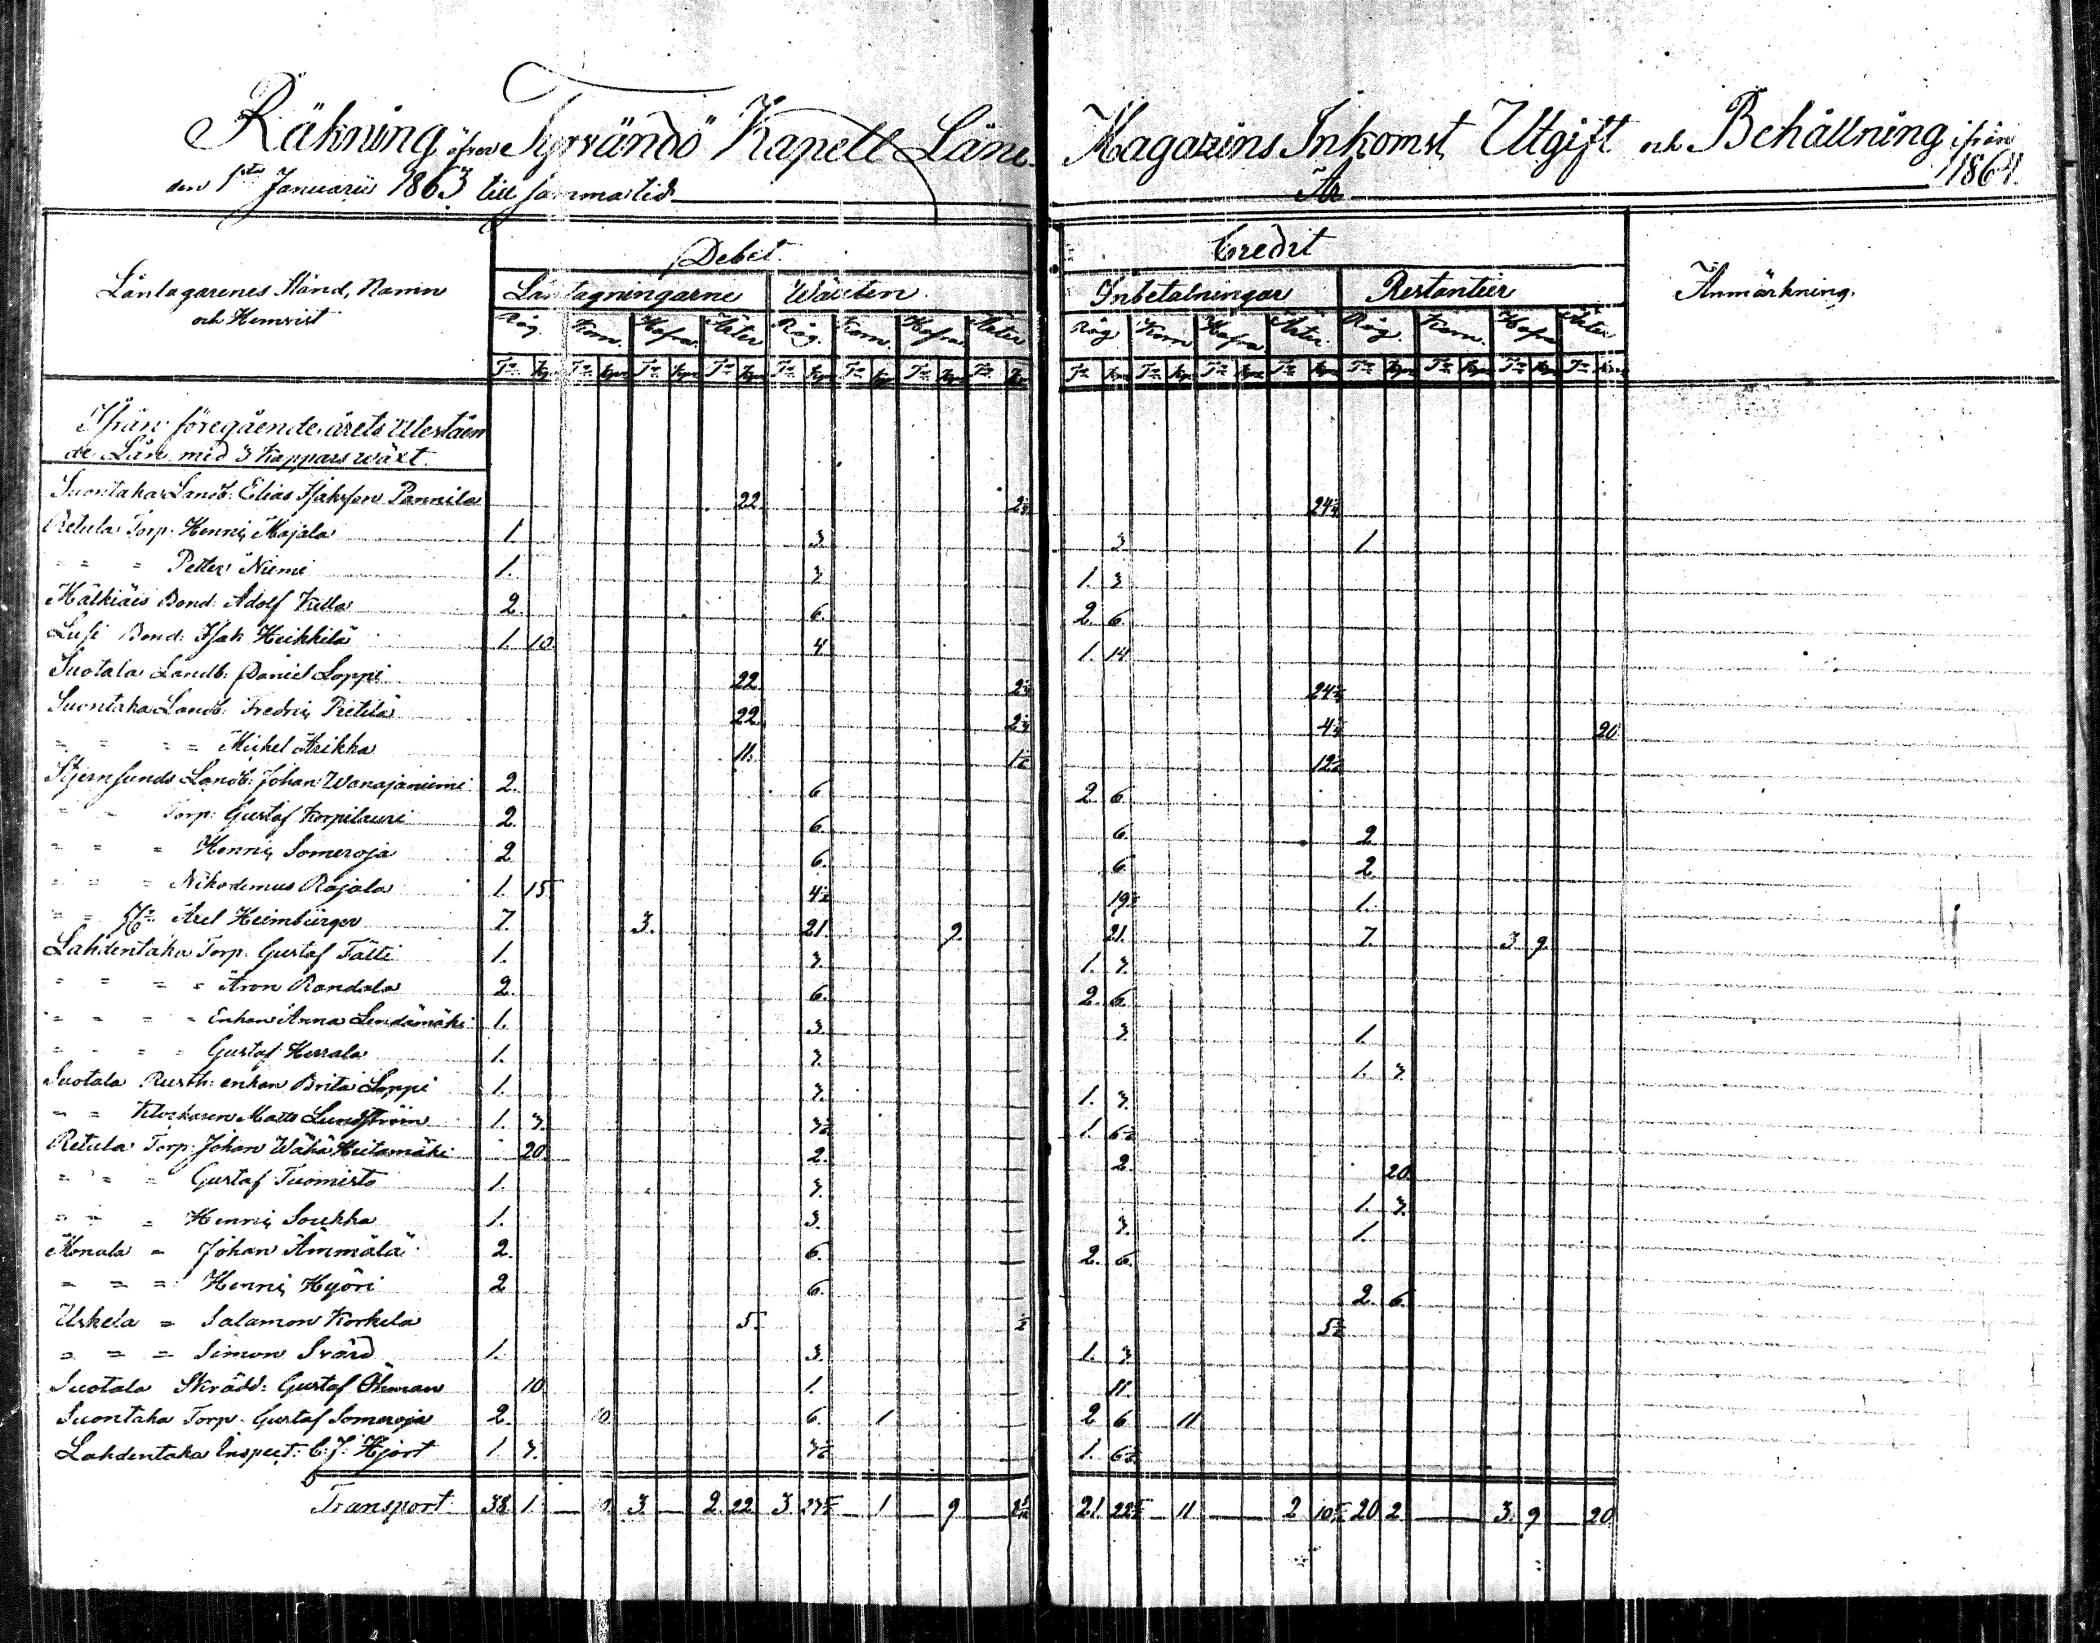 Räkning öfver Tyrvändö Kapell Låne Magazins Inkomst Utgift och Behållning ifrån
den 1sta Januarii 1863 till samma tid År 1864.
Debet. Credit
Låntagarenes Stånd, Namn och Hemvist Låntagningarne Wäxten Inbetalningar Restantier Anmärkning.
Råg. Korn. Hafra Ärter Råg. Korn. Hafra Ärter Råg Korn Hafra Ärter Råg. Korn. Hafra Ärter
Ifrån föregående årets Utestäen
de Lån med 3 Kappars wäxt.
Suontaka Landb: Elias Isaksson Pannila 22. 2¼ 24¼
Retula Torp: Henric Majala 1 3. 3 1
" = = Petter Niemi 1. 3 1. 3
Hälkiäis Bond: Adolf Killa 2. 6. 2. 6.
Lusi Bond: Isak Heikkilä 1. 10. 4 1. 14
Suotala Landb: Daniel Loppi 22. 2¼ 24¼
Suontaka Landb: Fredric Pietilä 22. 2¼ 4¼ 20.
= = = = Michel Arikka 11. 1½ 12½
Stjernsunds Landb: Johan Wanajaniemi 2. 6 2 6
" = Torp: Gustaf Korpilauri 2. 6. 6. 2
= = = Henric Someroja 2 6. 6 2.
= = = Nikodemus Rajala 1. 15. 4½ 19½ 1.
= = Hr Axel Heimbürger 7. 3. 21. 9. 21. 7. 3 9.
Lahdentaka Torp: Gustaf Tätti 1. 3. 1. 3.
= = = = Aron Randala 2. 6. 2. 6.
= = = = Enkan Anna Lindämäki 1. 3. 3. 1.
= = = = Gustaf Herrala 1. 3. 1. 3.
Suotala Rusth: enkan Brita Loppi 1. 3. 1. 3.
= = Klockaren Matts Lundström 1. 3. 3½ 1. 6½
Retula Torp: Johan Wähä Heitamäki 20. 2. 2 20.
= = = Gustaf Tuomisto 1. 3. 1. 3.
= = = Henric Soukka 1. 3. 3. 1.
Konala = Johan Ämmälä 2. 6. 2. 6.
= = = Henric Hyöri 2 6. 2. 6.
Uskela = Salamon Korkela 5. ½ 5½
= = = Simon Svärd 1. 3. 1. 3
Suotala Skrädd: Gustaf Öhman 10. 1. 11.
Suontaka Torp: Gustaf Someroja 2. 10. 6. 1 2 6 11
Lahdentaka Inspect: C: J: Hjort 1. 3. 3½ 1. 6½
Transport 38. 1. 3. 2. 22 3. 1 9 21 11 2 20 2 3. 9 20